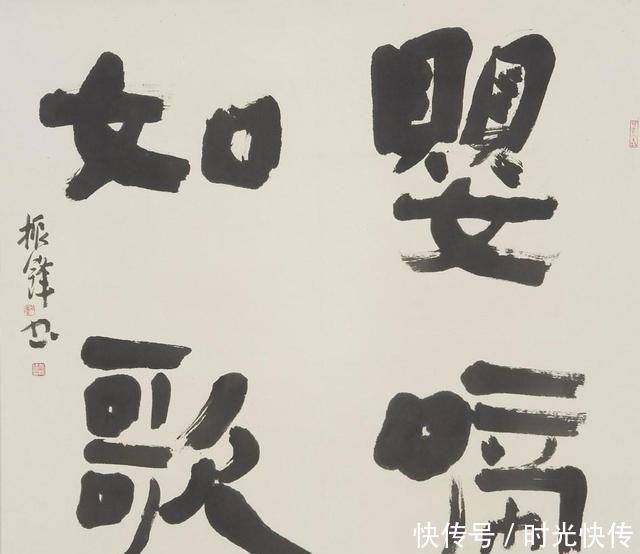 嬰啼
如歌
振鋒书
快传号 / 时光快传